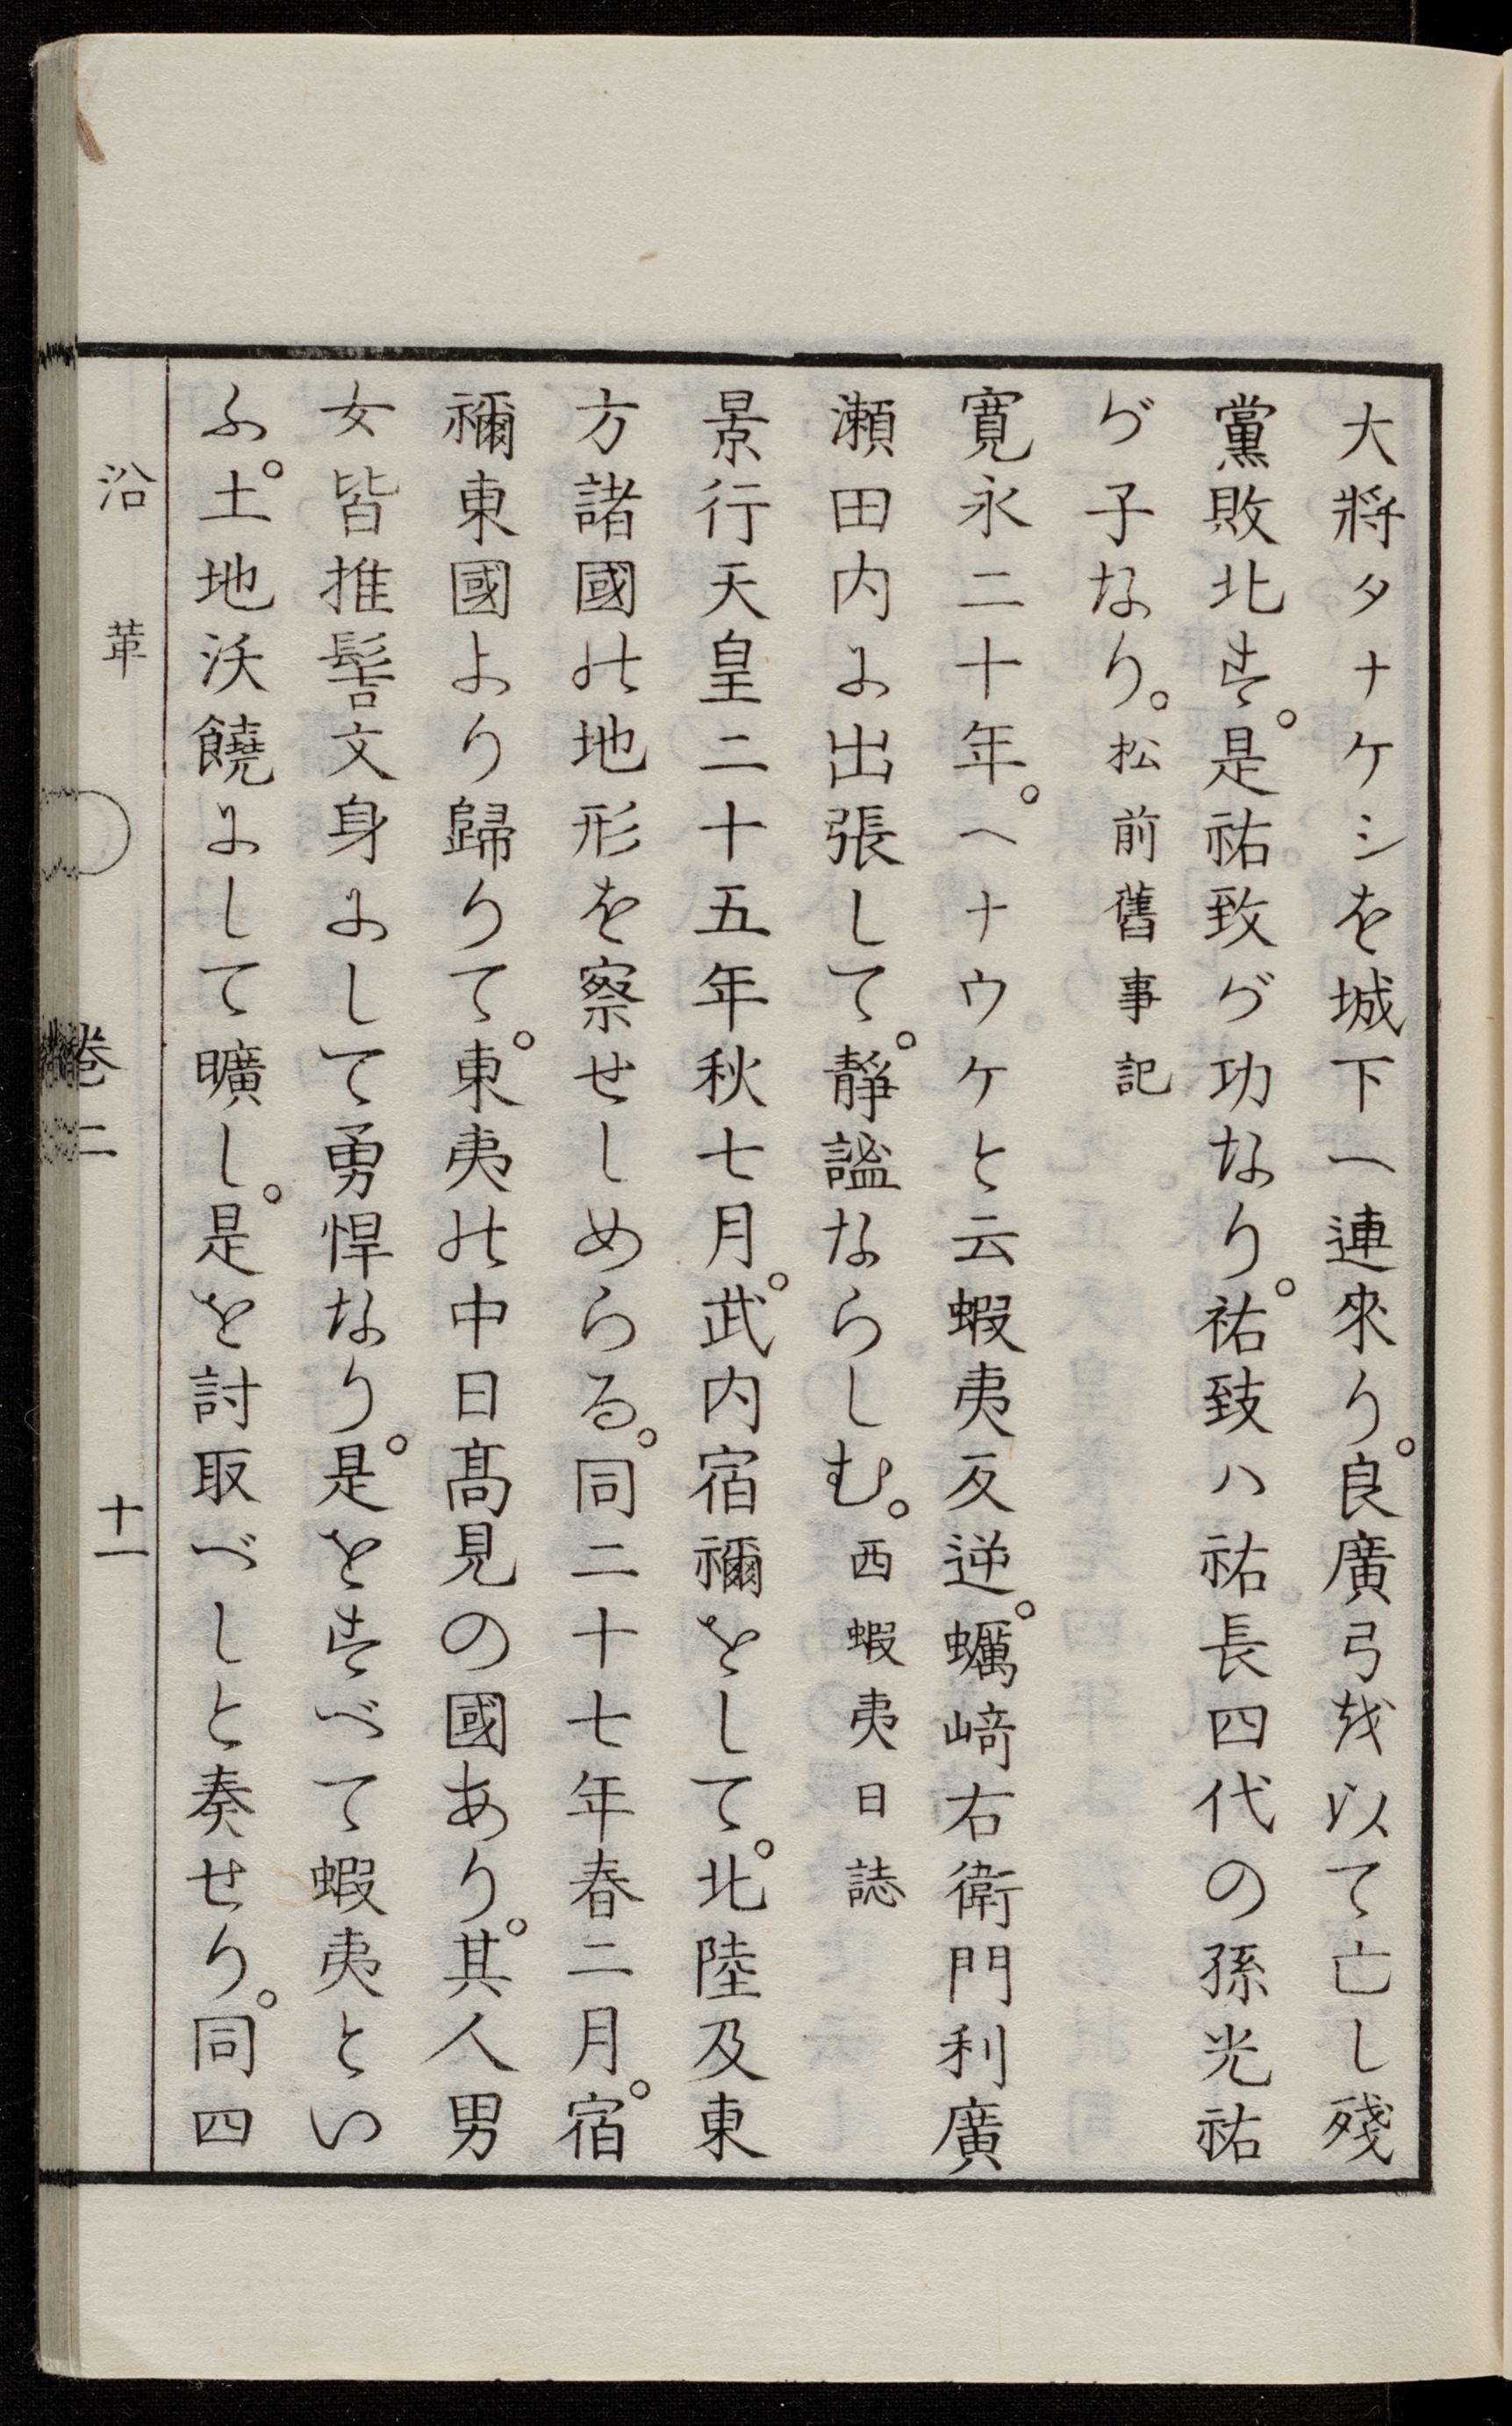 大將タナケシを城下ヘ連來り。良廣弓を以て亡し殘
黨敗北す。是祐致が功なり。祐致ハ祐長四代の孫光祐
が子なり。松前舊事記
寛永二十年。ヘナウケと云蝦夷反逆。蠣﨑右衛門利廣
瀬田内に出張して。靜謐ならしむ。西蝦夷日誌
景行天皇二十五年秋七月。武内宿禰をして。北陸及東
方諸國の地形を察せしめらる。同二十七年春二月。宿
禰東國より歸りて。東夷の中日髙見の國あり。其人男
女皆推髻文身にして勇悍なり。是をすべて蝦夷とい
ふ。土地沃饒にして曠し。是を討取べしと奏せり。同四
沿革 卷二 十一